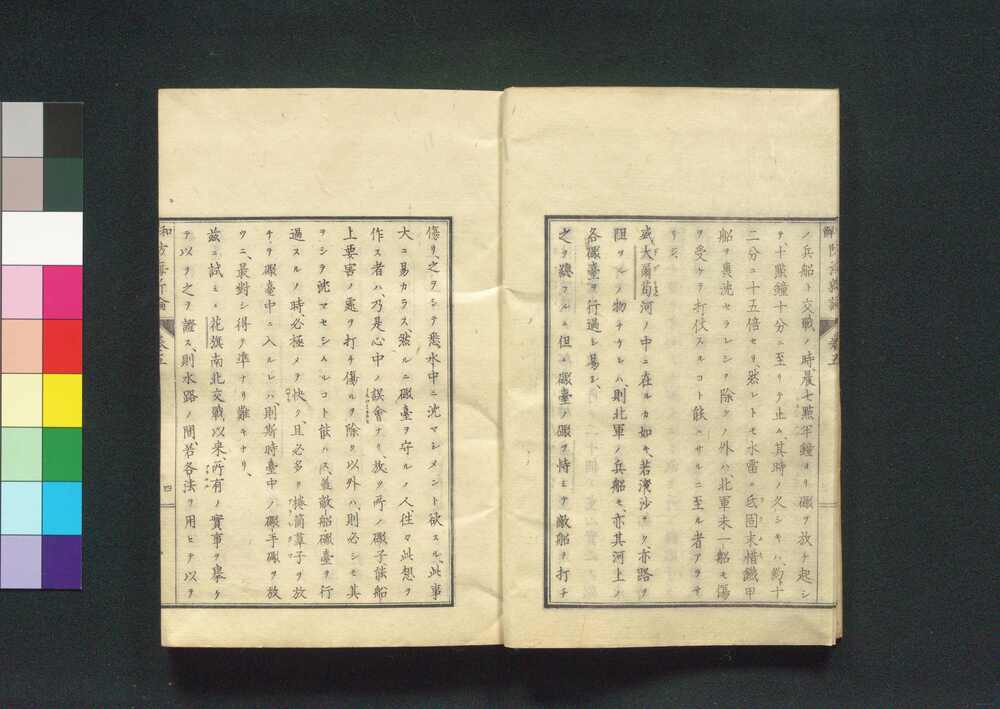 ノ兵船ト交戰ノ時、晨七點半鐘ヨリ礮ヲ放チ起シ
テ、十點鐘十分ニ至リテ止ム、其時ノ久シキハ、約十
二分ニ十五倍セリ、然レトモ水雷ノ氐固未惜鐵甲
船ヲ裏沈セラレシヲ除クノ外ハ、北軍未一船モ傷
ヲ受ケテ打仗スルコト能ハサルニ至ル者アラサ
リシ、
盛大爾荀河ノ中ニ在ルカ如キ、若濱沙ヲク亦路ヲ
阻ツルノ物ナケレハ、則北軍ノ兵船モ、亦其河上ノ
各礮臺ヲ行過シ易シ、
之ヲ總フルニ但ニ礮臺ノ礮ヲ恃ミテ敵船ヲ打チ
傷リ、之ヲシテ悉水中ニ沈マシメント欲スル、此事
大ニ易カラス、然ルニ礮臺ヲ守ルノ人、往々此想ヲ
作ス者ハ、乃是心中ノ誤會ナリ、放ツ所ノ礮子、能船
上要害ノ處ヲ打チ傷ルヲ除ク以外ハ、則必シモ其
ヲシテ沈マセシムルコト能ハス、蓋敵船礮臺ヲ行
過スルノ時、必極メテ快ク、且必多ク捲筒葦子ヲ放
チテ礮臺中ニ入ルレハ、則斯時臺中ノ礮手礮ヲ放
ツニ、最對シ得テ準ナリ難キナリ、
茲ニ試ミニ花旗南北交戰以來、所有ノ實事ヲ擧ケ
テ以テ之ヲ證ス、則水路ノ間、若各法ヲ用ヒテ以テ
四